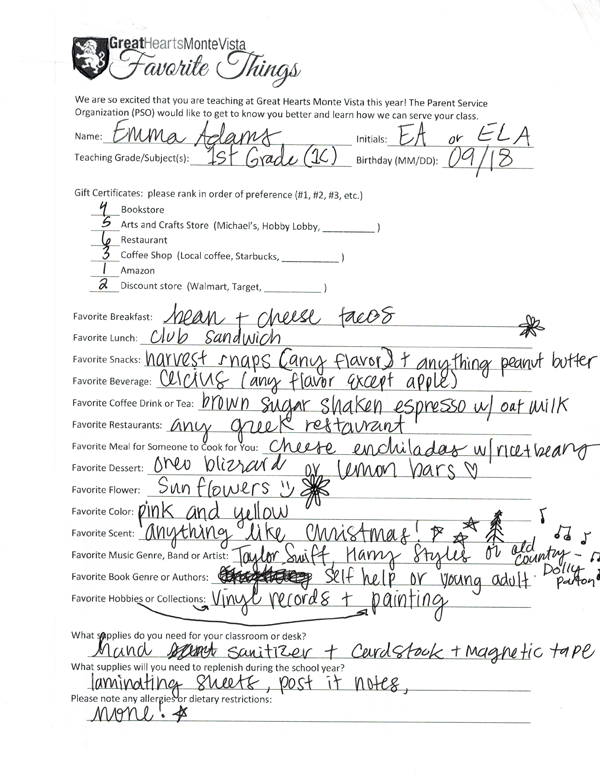 GreatHeartsMonteVista
Favorite Things
We are so excited that you are teaching at Great Hearts Monte Vista this year! The Parent Service
Organization (PSO) would like to get to know you better and learn how we can serve your class.
Name: Emma Adams Initials: EA or ELA
Teaching Grade/Subject(s): 1st Grade (1C) Birthday (MM/DD): 09/18
Gift Certificates: please rank in order of preference (#1, #2, #3, etc.)
4 Bookstore
5 Arts and Crafts Store (Michael's, Hobby Lobby, __________ )
6 Restaurant
3 Coffee Shop (Local coffee, Starbucks, __________ )
1 Amazon
2 Discount store (Walmart, Target, __________ )
Favorite Breakfast: bean + cheese tacos
Favorite Lunch: club sandwich
Favorite Snacks: harvest snaps (any flavor) + anything peanut butter
Favorite Beverage: Celcius (any flavor except apple)
Favorite Coffee Drink or Tea: brown sugar shaken espresso w/ oat milk
Favorite Restaurants: any greek restaurant
Favorite Meal for Someone to Cook for You: cheese enchiladas w/ rice + beans
Favorite Dessert: Oreo blizzard or lemon bars ♡
Favorite Flower: Sunflowers
Favorite Color: pink and yellow
Favorite Scent: anything like Christmas!
Favorite Music Genre, Band or Artist: Taylor Swift, Harry Styles or old country - Dolly parton
Favorite Book Genre or Authors: self help or young adult
Favorite Hobbies or Collections: Vinyl records + painting
What supplies do you need for your classroom or desk?
hand sanitizer + Cardstock + Magnetic tape
What supplies will you need to replenish during the school year?
laminating sheets, post it notes,
Please note any allergies or dietary restrictions:
none!